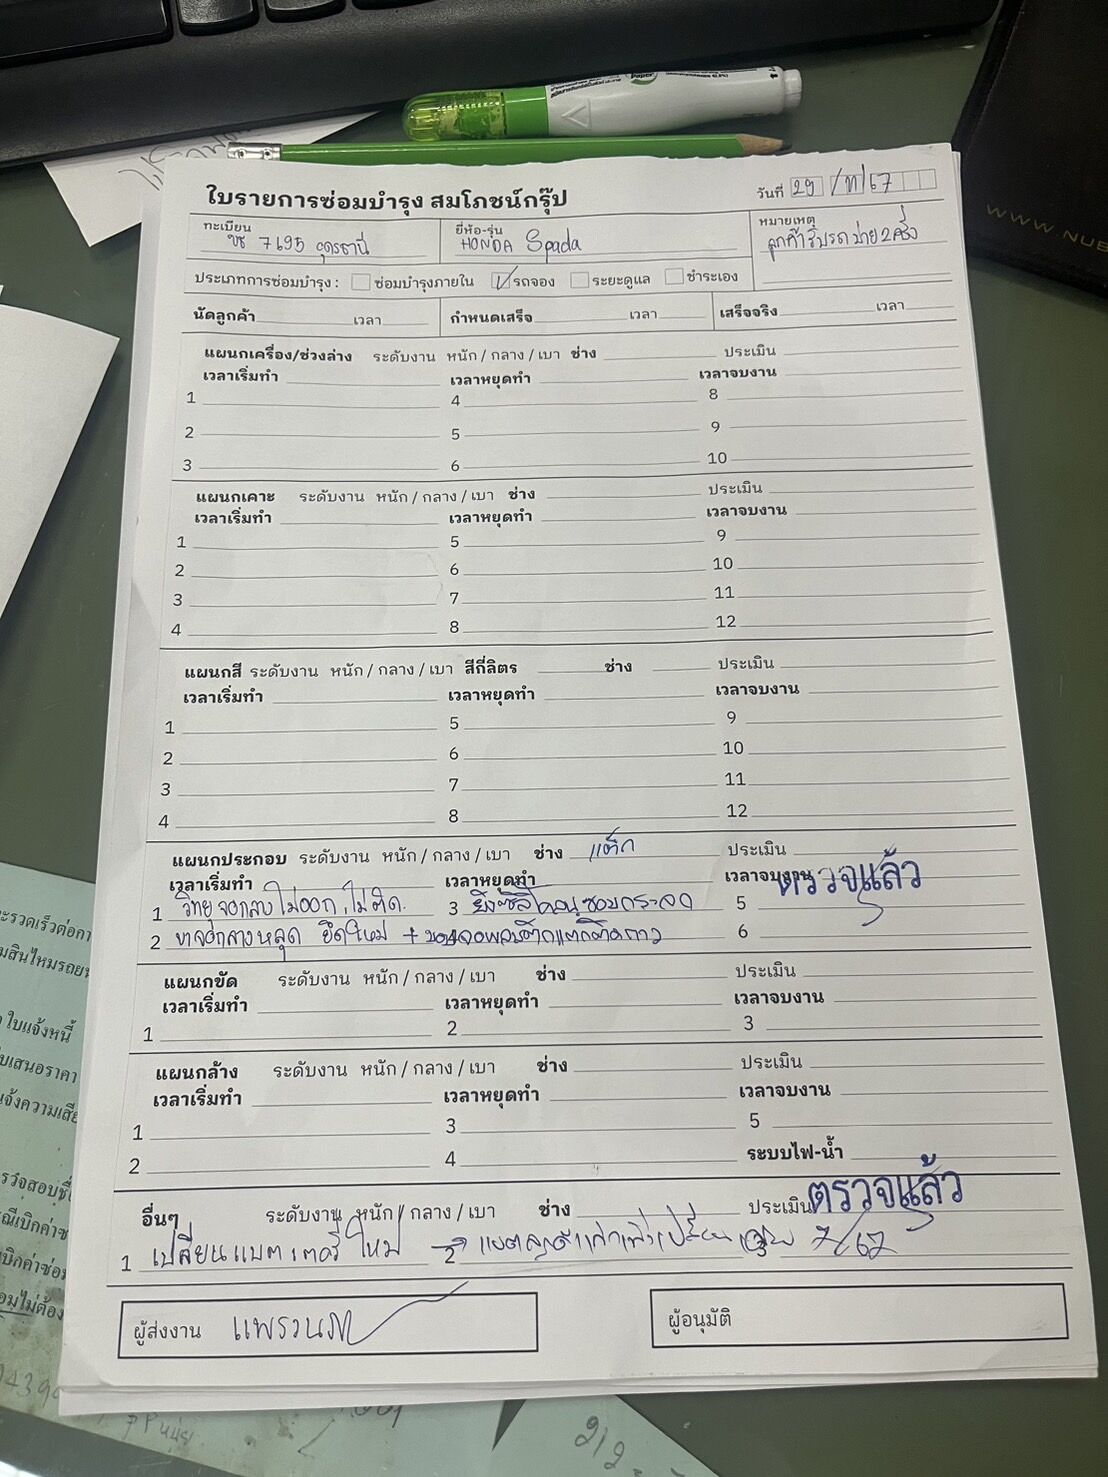 Paper
ใบรายการซ่อมบำรุง สมโภชน์กรุ๊ป
วันที่ 29 / 11 / 67
ทะเบียน
7695 อุดรธานี
ยี่ห้อ-รุ่น
HONDA Spada
หมายเหตุ
ลูกค้า รถ บ่าย 2 ครึ่ง
ประเภทการซ่อมบำรุง : ซ่อมบำรุงภายใน รถจอง ระยะดูแล ชำระเอง
นัดลูกค้า เวลา กำหนดเสร็จ เวลา เสร็จจริง เวลา
แผนกเครื่อง/ช่วงล่าง ระดับงาน หนัก / กลาง / เบา ช่าง ประเมิน
เวลาเริ่มทำ เวลาหยุดทำ เวลาจบงาน
1 4 8
2 5 9
3 6 10
แผนกเคาะ ระดับงาน หนัก / กลาง / เบา ช่าง ประเมิน
เวลาเริ่มทำ เวลาหยุดทำ เวลาจบงาน
1 5 9
2 6 10
3 7 11
4 8 12
แผนกสี ระดับงาน หนัก / กลาง / เบา สีกี่ลิตร ช่าง ประเมิน
เวลาเริ่มทำ เวลาหยุดทำ เวลาจบงาน
1 5 9
2 6 10
3 7 11
4 8 12
แผนกประกอบ ระดับงาน หนัก / กลาง / เบา ช่าง แต็ก ประเมิน
เวลาเริ่มทำ เวลาหยุดทำ เวลาจบงาน ตรวจแล้ว
1 วิทยุ จอ ไม่ออก, ไม่ติด. 3 5
2 หลุด ยึดใหม่ + 6
แผนกขัด ระดับงาน หนัก / กลาง / เบา ช่าง ประเมิน
เวลาเริ่มทำ เวลาหยุดทำ เวลาจบงาน
1 2 3
แผนกล้าง ระดับงาน หนัก / กลาง / เบา ช่าง ประเมิน
เวลาเริ่มทำ เวลาหยุดทำ เวลาจบงาน
1 3 5
2 4 ระบบไฟ-น้ำ
อื่นๆ ระดับงาน หนัก / กลาง / เบา ช่าง ประเมิน ตรวจแล้ว
1 เปลี่ยนแบตเตอรี่ใหม่ → 2 7/67
ผู้ส่งงาน
ผู้อนุมัติ
WWW.NUB
ใบแจ้งหนี้